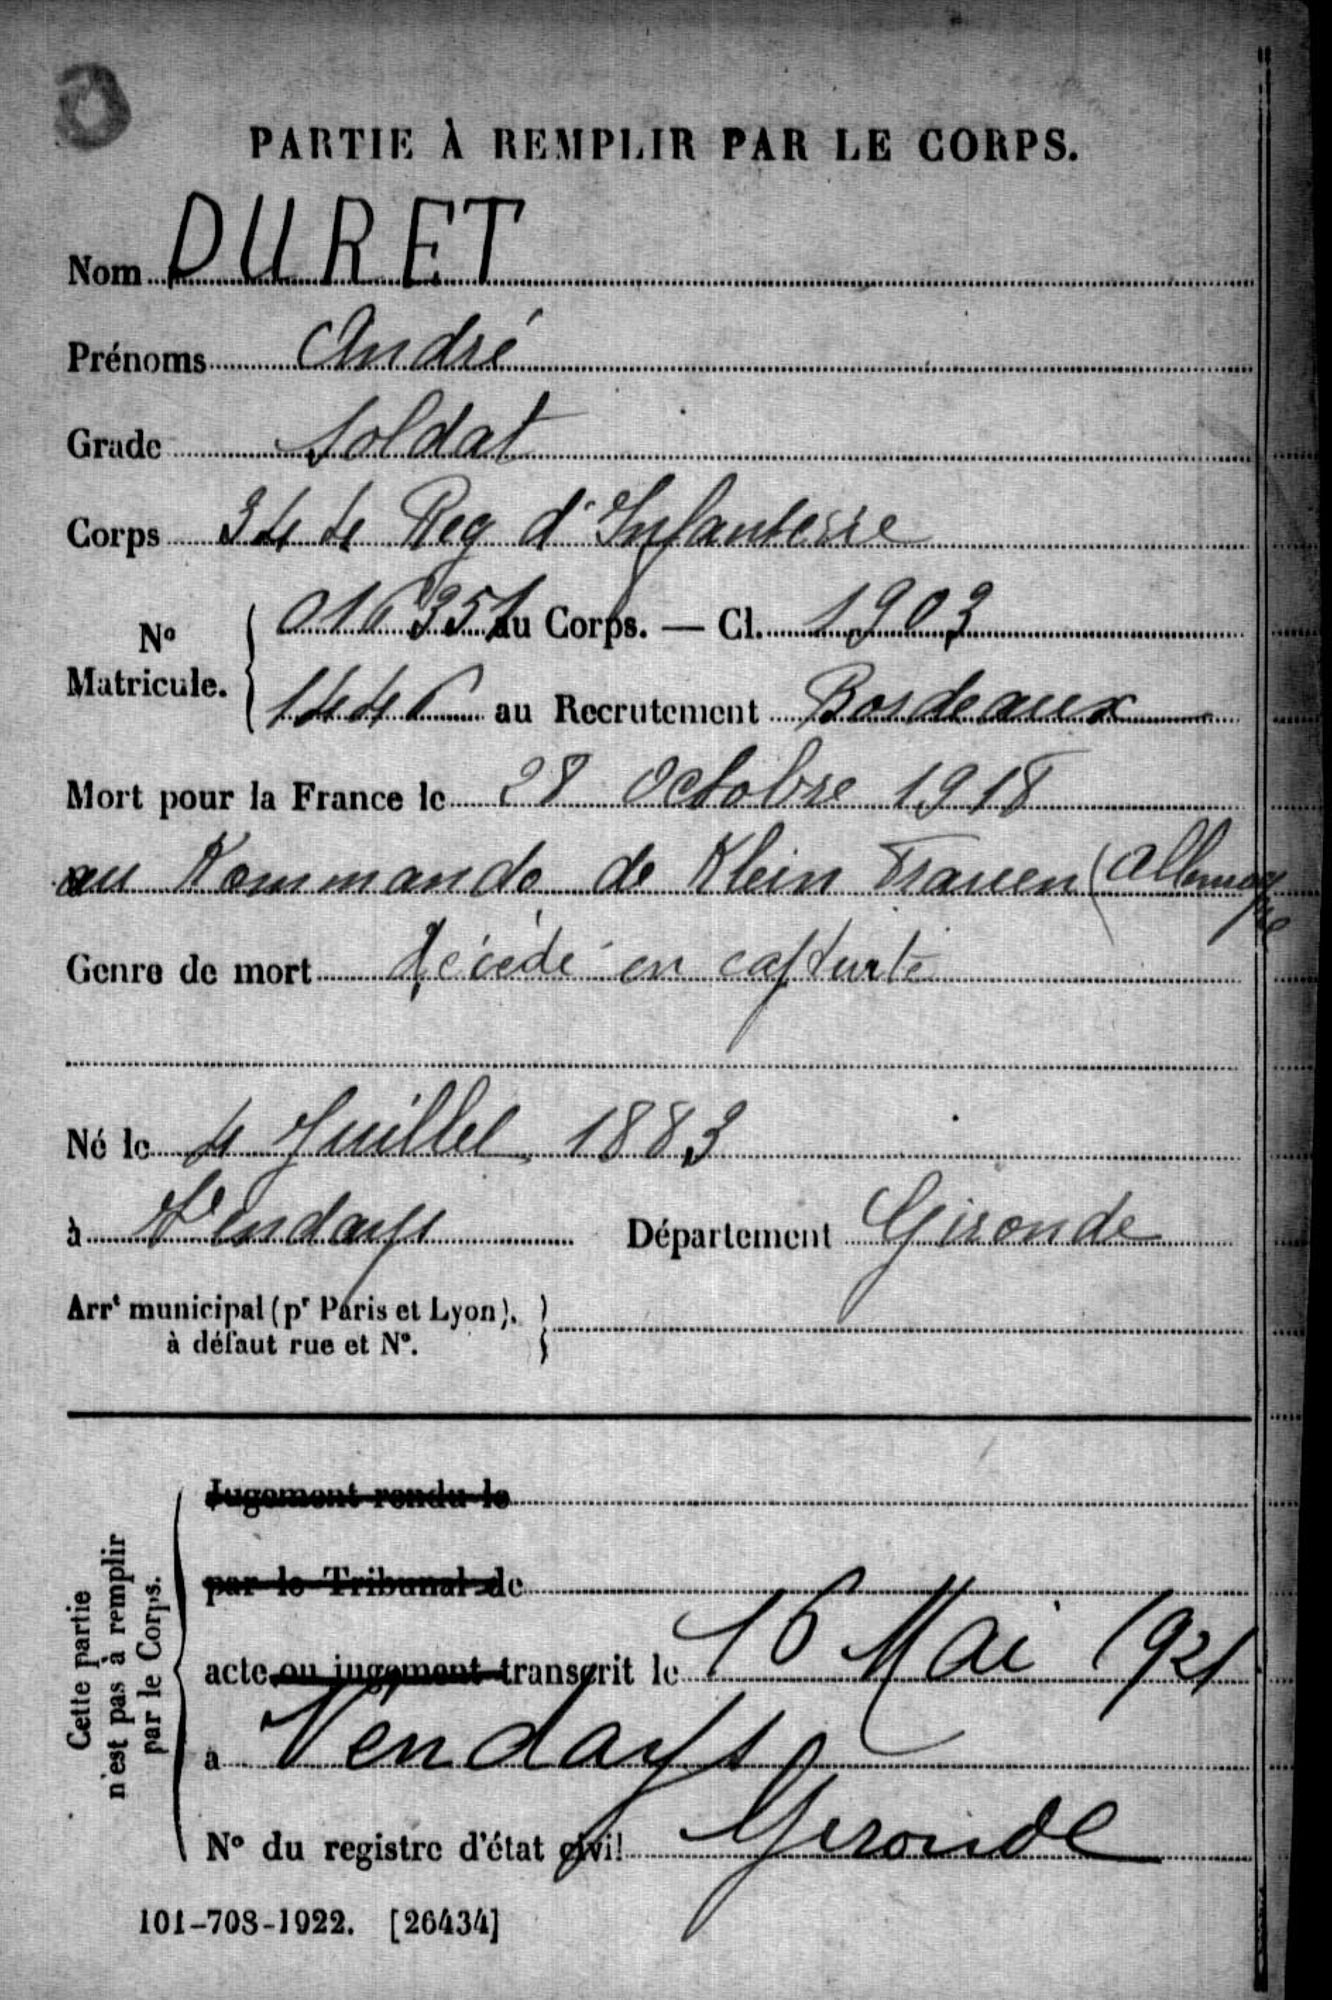 PARTIE À REMPLIR PAR LE CORPS.
Nom DURET
Prénoms André
Grade Soldat
Corps 344 Reg d'Infanterie
N° Matricule. 016351 au Corps. — Cl. 1903
1446 au Recrutement Bordeaux
Mort pour la France le 28 Octobre 1918
au Kommando de Klein Trauen (Allemagne
Genre de mort Décédé en captivité
Né le 4 Juillet 1883
à Vendays Département Gironde
Arrt municipal (pr Paris et Lyon),
à défaut rue et N°.
Cette partie
n'est pas à remplir
par le Corps.
Jugement rendu le
par le Tribunal de
acte ou jugement transcrit le 16 Mai 1921
à Vendays
N° du registre d'état civil Gironde
101-708-1922. [26434]